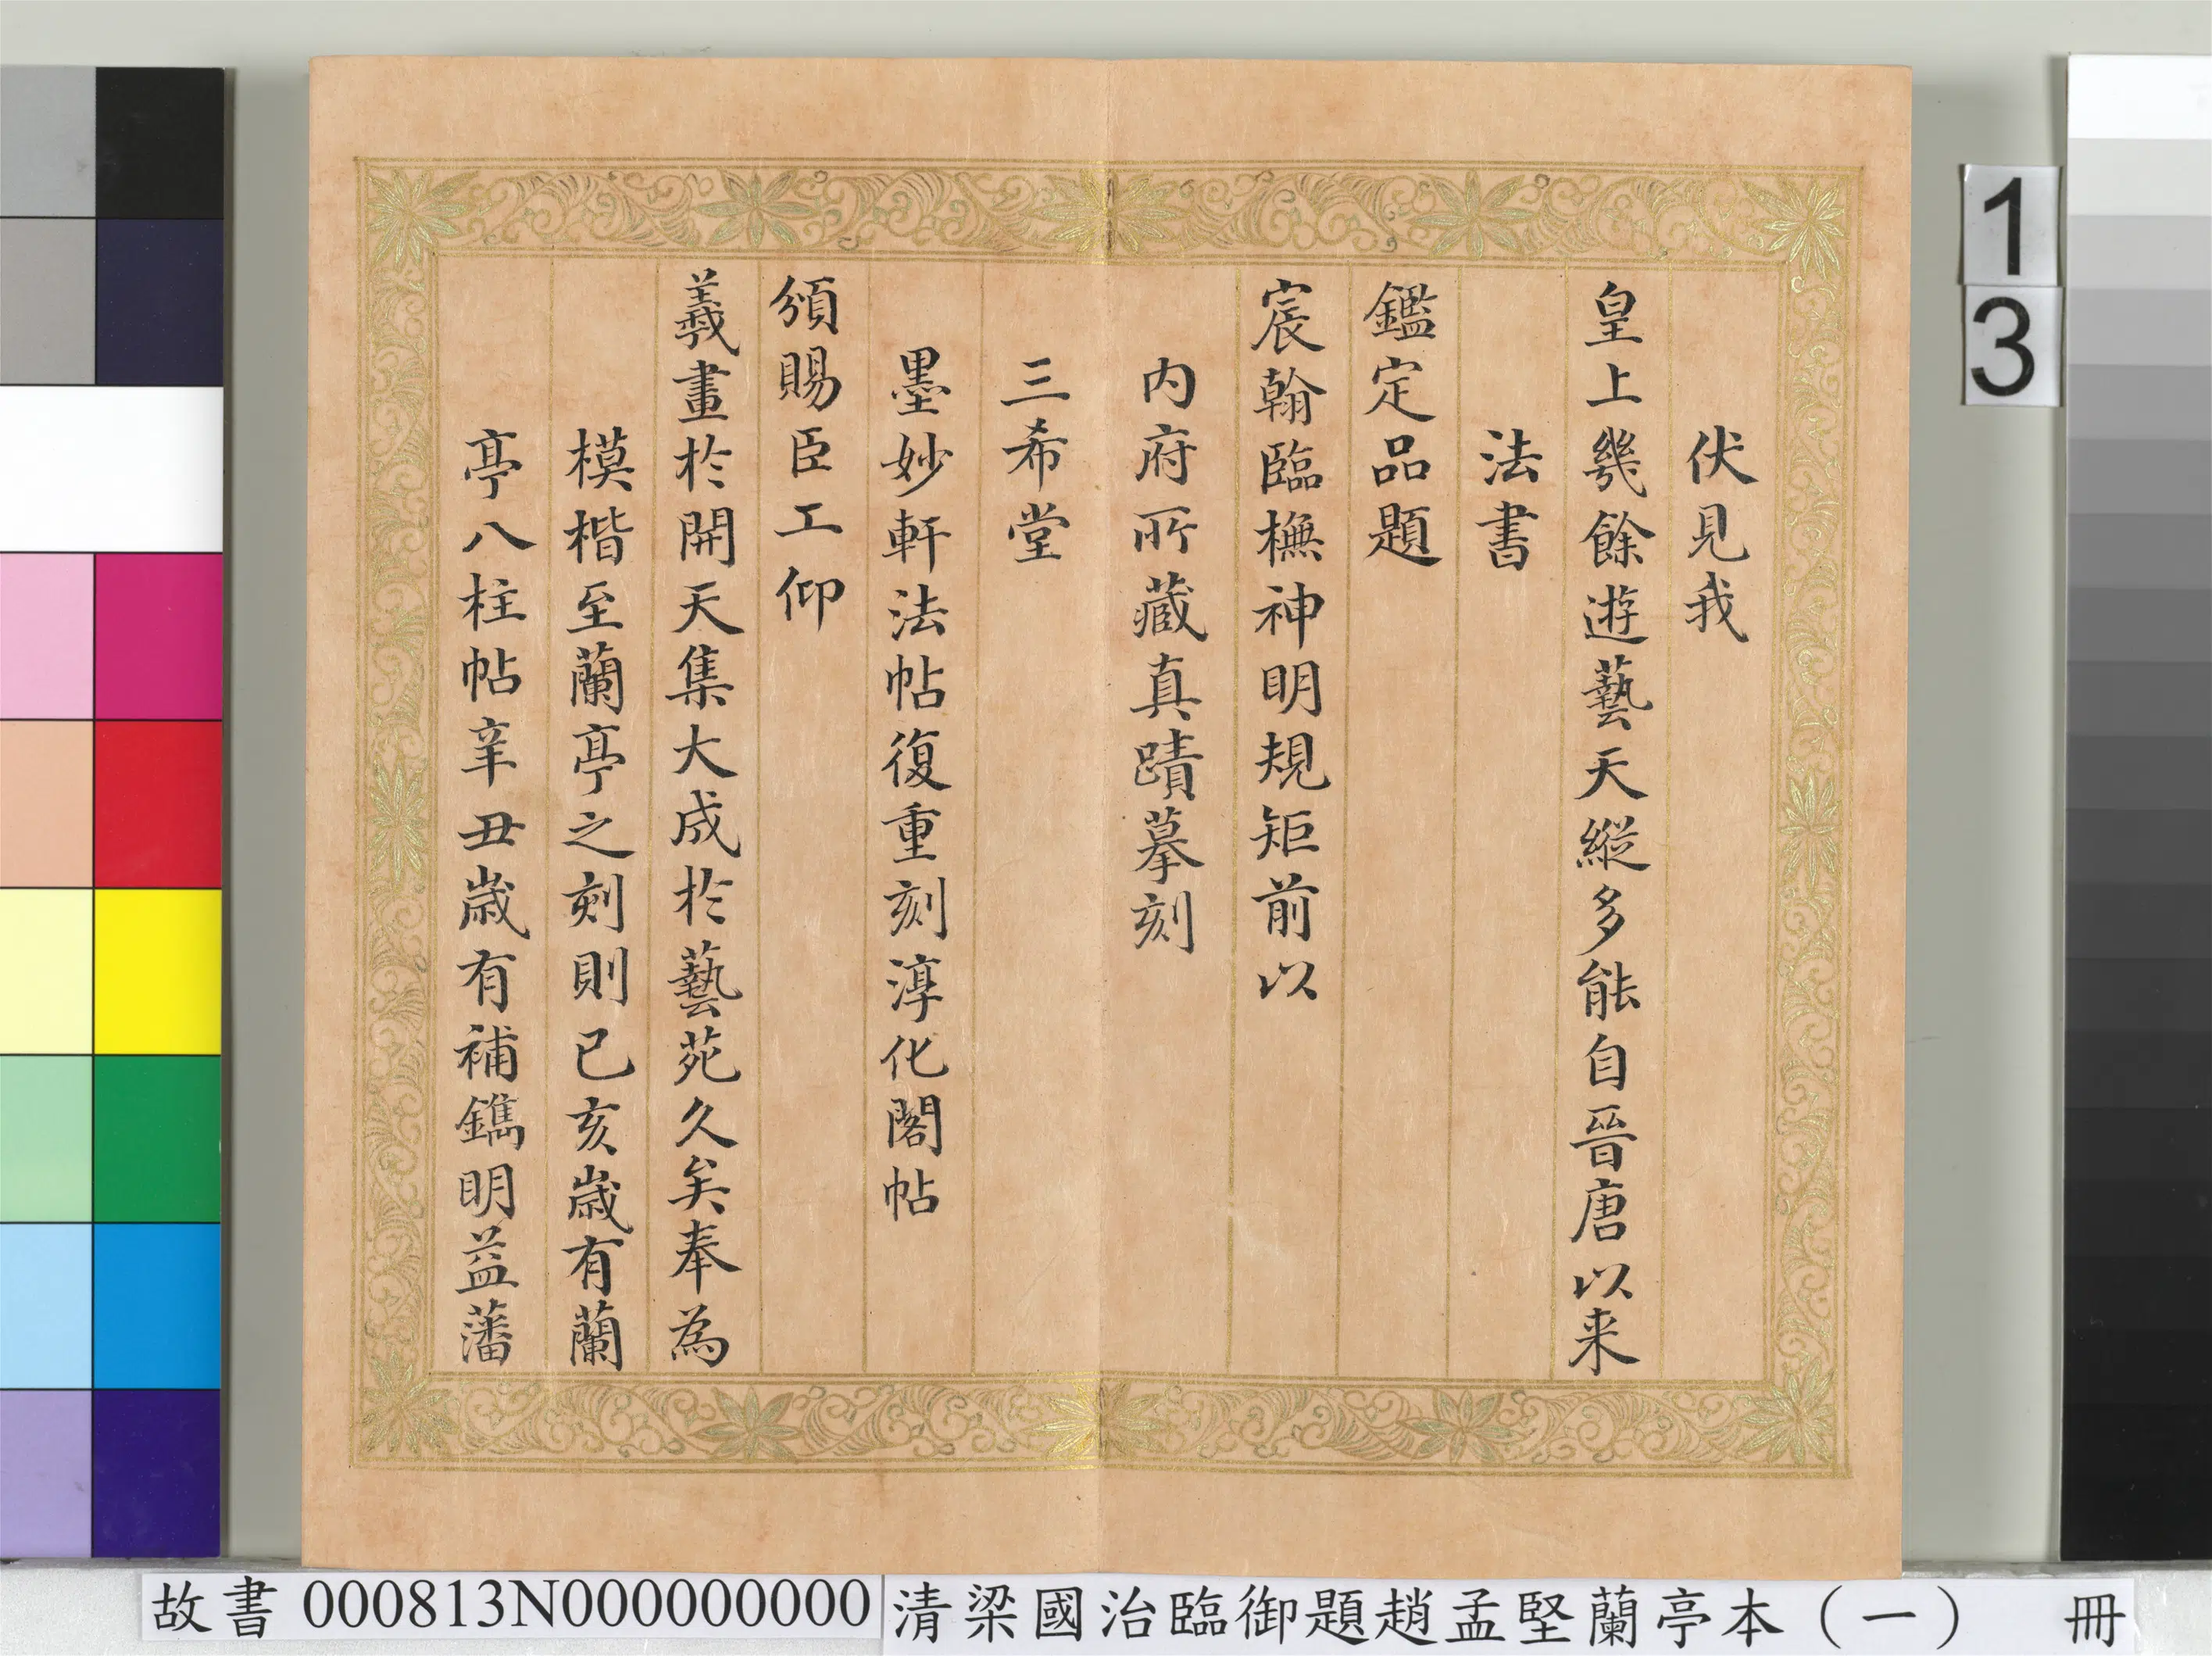 伏見我
皇上幾餘遊藝天縱多能自晉唐以来
法書
鑑定品題
宸翰臨橅神明規矩前以
内府所藏真蹟摹刻
三希堂
墨妙軒法帖復重刻淳化閣帖
頒賜臣工仰
羲畫於開天集大成於藝苑久矣奉為
模楷至蘭亭之刻則已亥歲有蘭
亭八柱帖辛丑歲有補鐫明益藩
1
3
故書 000813N000000000
清梁國治臨御題趙孟堅蘭亭本（一） 冊